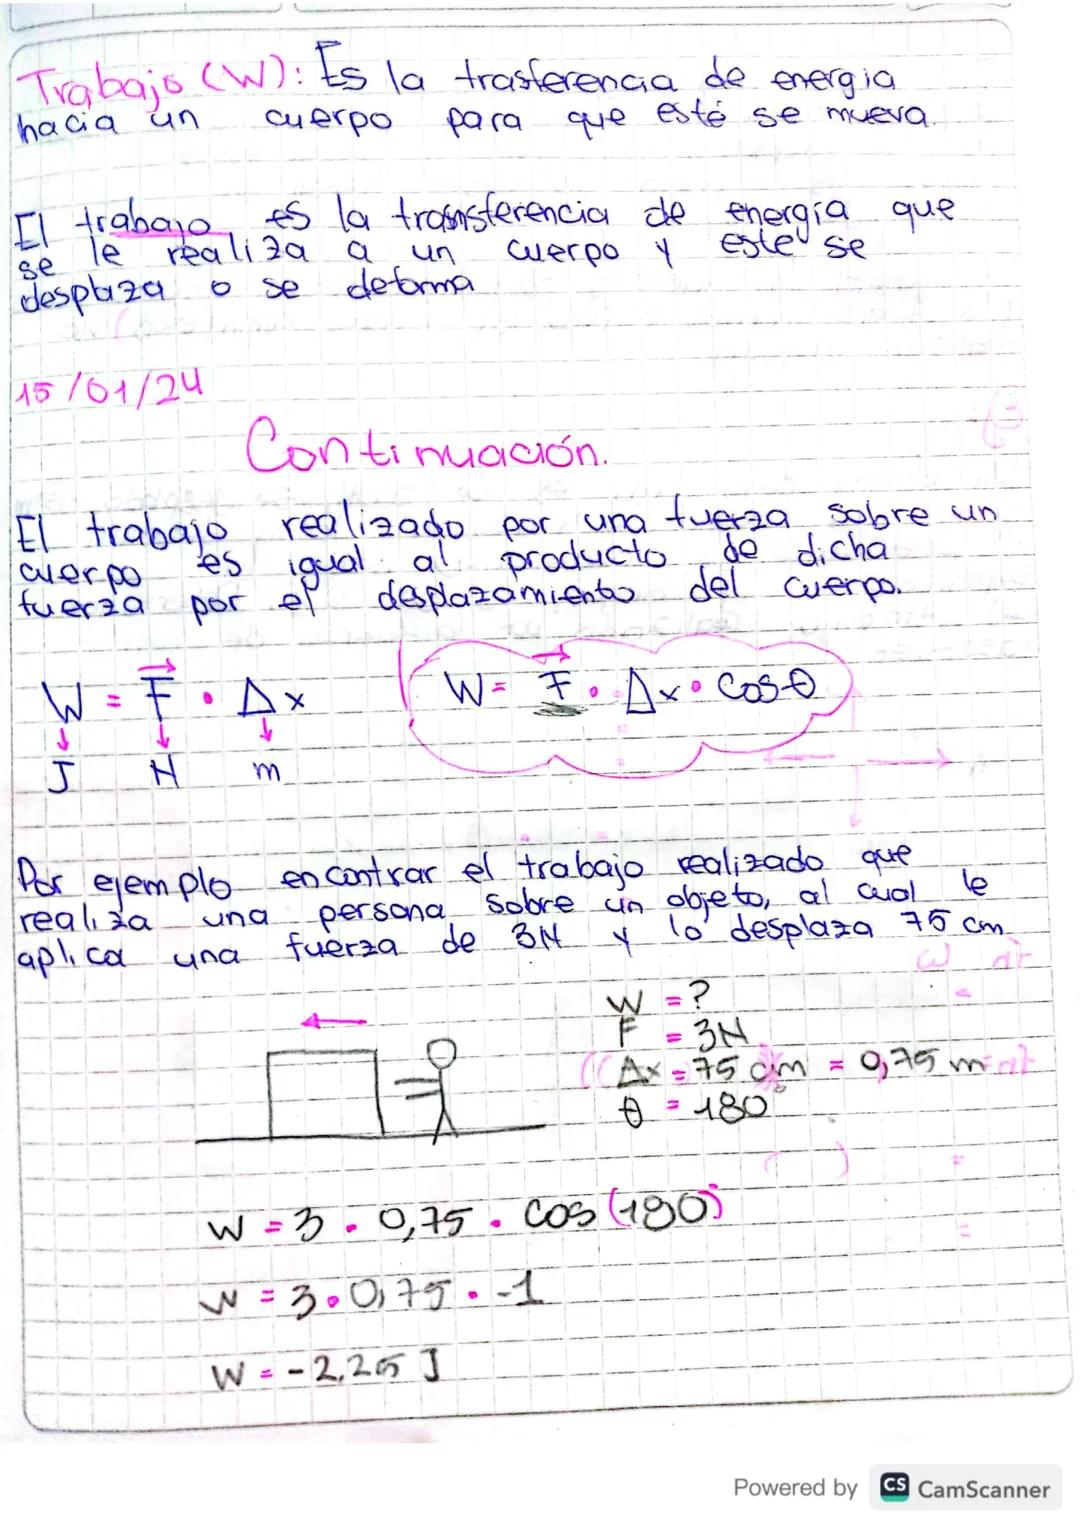 Trabajo (W): Es la trasferencia de energia
hacia un cuerpo para que esté se mueva.
El trabajo es la transferencia de energía que
se le realiza a un cuerpo y este se
desplaza o se deforma
15/01/24
Continuación.
El trabajo realizado por una fuerza sobre un
cuerpo es igual al producto de dicha
fuerza por el desplazamiento del cuerpo.
W = F • Δx
J N m
W = F • Δx • Cos θ
Por ejemplo encontrar el trabajo realizado que
realiza una persona sobre un objeto, al cual le
aplica una fuerza de 3N y lo desplaza 75 cm
W = ?
F = 3N
Δx = 75 cm = 0,75 m
θ = 180°
W = 3 • 0,75 • Cos (180°)
W = 3 • 0,75 • -1
W = -2,25 J
Powered by CS CamScanner